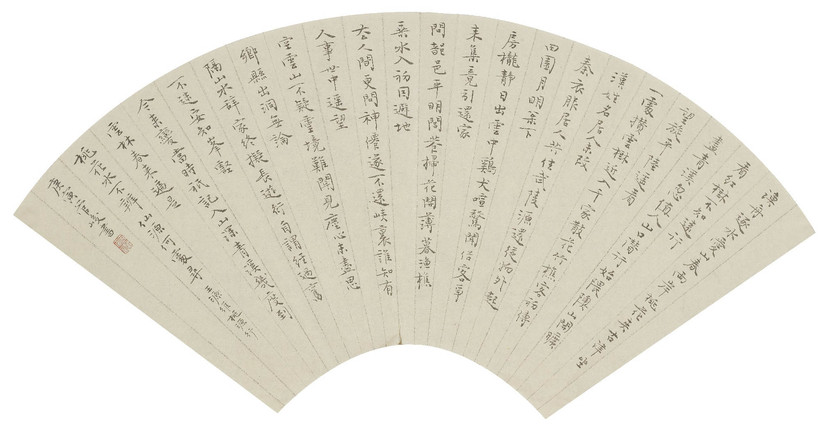 漁舟逐水愛山春兩岸桃花夾古津坐
看紅樹不知遠行
盡青溪忽值人山口潛行始隈隩山開曠
望旋平陸遙看
一處攢雲樹近入千家散花竹樵客初傳
漢姓名居人未改
秦衣服居人共住武陵源還從物外起
田園月明松下
房櫳靜日出雲中鷄犬喧驚聞俗客爭
来集競引還家
問都邑平明閭巷掃花開薄暮漁樵
乘水入初因避地
去人間更問神僊遂不還峽裏誰知有
人事世中遥望
空雲山不疑靈境難聞見塵心未盡思
鄉縣出洞無論
隔山水辭家終擬長遊衍自謂經過舊
不迷安知峯壑
今来變當時祇記入山深青溪幾度到
雲林春来遍是
桃花水不辨仙源何處尋 桃源行
庚寅管峻書